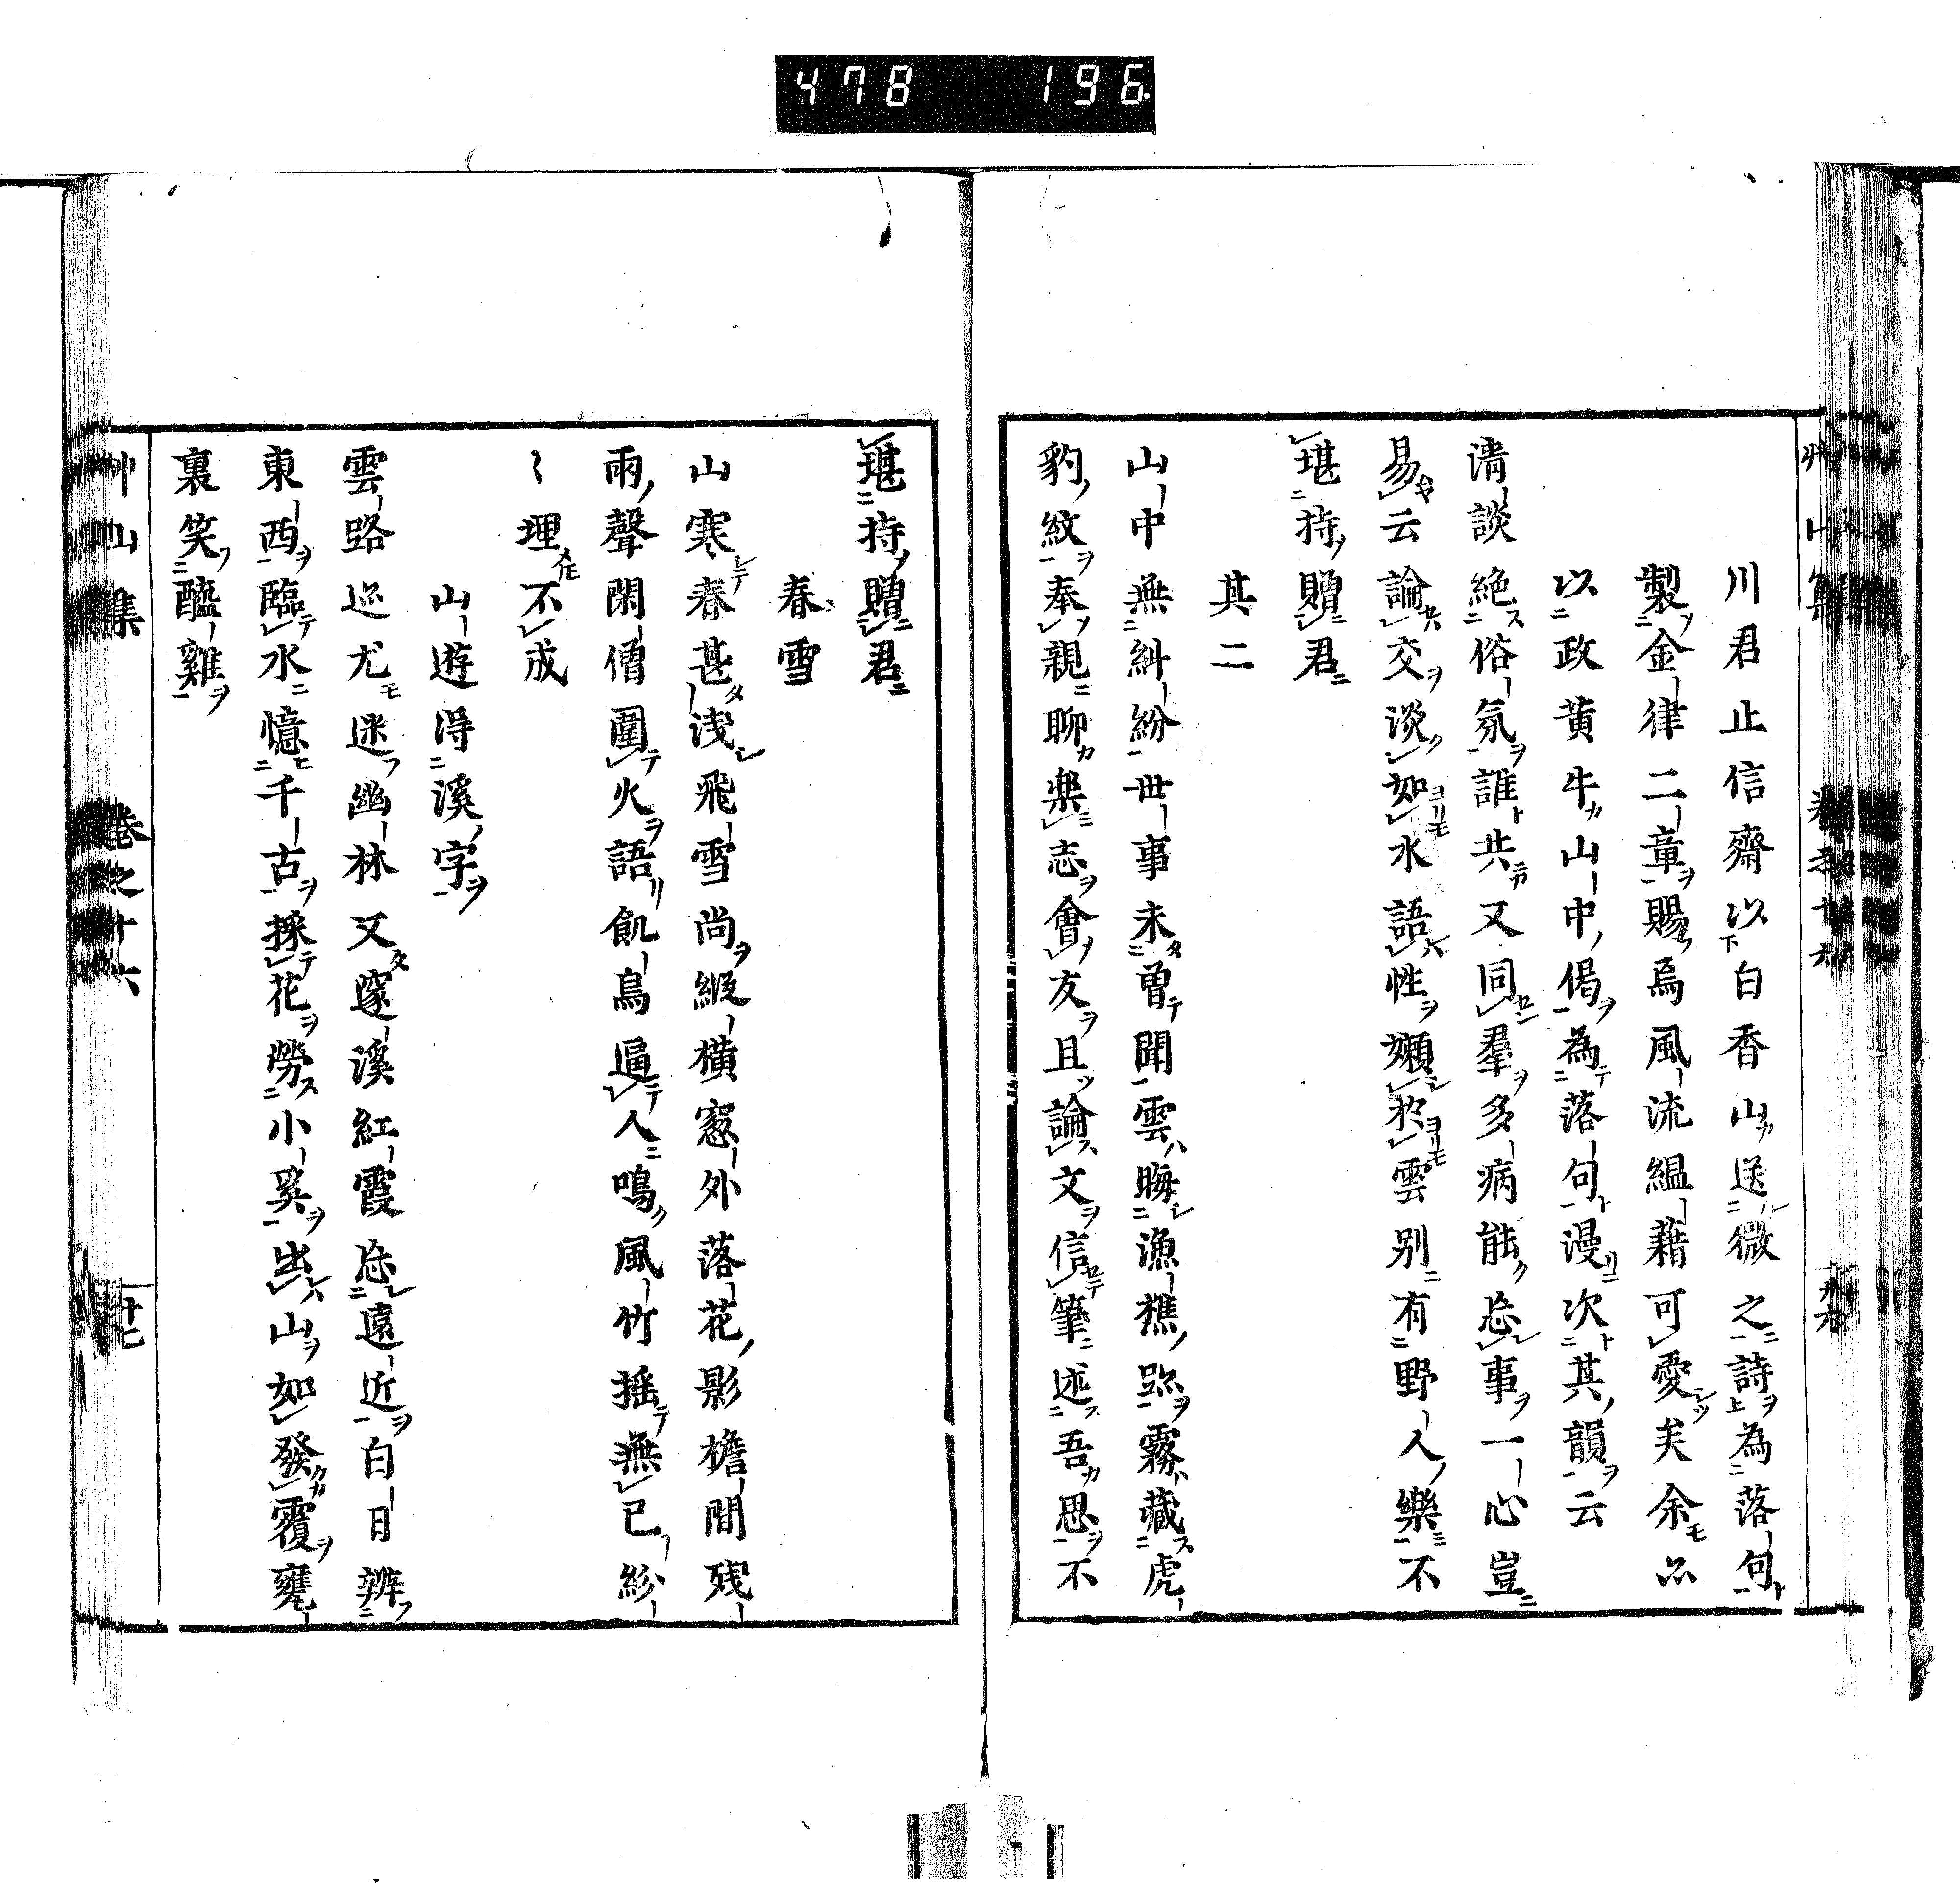 478 196
川君止信齋以白香山送微之詩為落句
製金律二章賜焉風流縕藉可愛矣余亦
以政黄牛山中偈為落句漫次其韻云
清談絶俗氛誰共又同羣多病能忘事一心豈
易云論交淡如水語性嬾於雲別有野人樂不
堪持贈君
其二
山中無糾紛世事未曽聞雲晦漁樵跡霧藏虎
豹紋奉親聊樂志會友且論文信筆述吾思不
堪持贈君
春雪
山寒春甚浅飛雪尚縱横窓外落花影檐間残
雨聲閑僧圍火語飢烏逼人鳴風竹揺無已紛
〻埋不成
山遊得溪字
雲路迩尤迷幽林又邃溪紅霞忘遠近白日辨
東西臨水憶千古採花勞小奚出山如發覆甕
裏笑醯雞
艸山集 卷之十六 十七